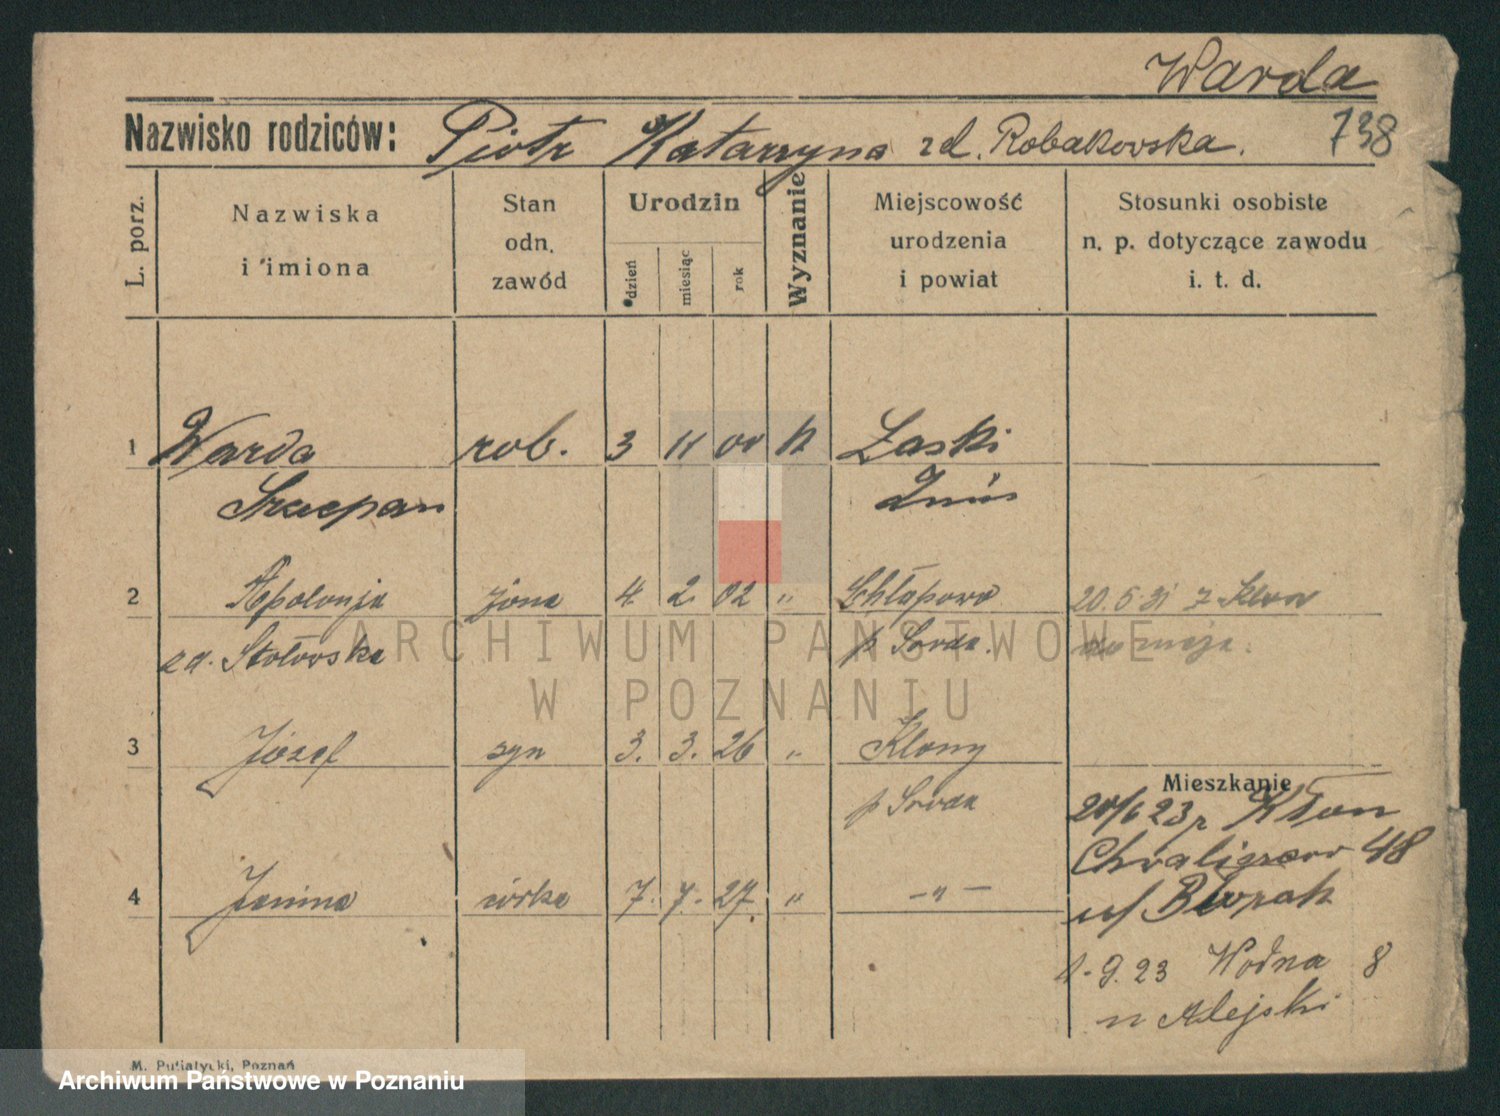 Warda
738
Nazwisko rodziców: Piotr Katarzyna zd. Robakowska.
L. porz.
Nazwiska
i imiona
Stan
odn.
zawód
Urodzin
dzień
miesiąc
rok
Wyznanie
Miejscowość
urodzenia
i powiat
Stosunki osobiste
n. p. dotyczące zawodu
i. t. d.
1 Warda rob. 3 11 00 k Łaski
Szczepan Żnin
2 Apolonja żona 4. 2. 02 " Chłapowo 20.5.31 z Klon
zd. Stołowska p Środa.
3 Józef syn 3. 3. 26 " Klony
p Środa
4 Janina córka 7. 7. 27. " —"—
Mieszkanie
20/6 23 z Kłon
48
1.9.23 Wodna 8
u Alejski
ARCHIWUM PAŃSTWOWE
W POZNANIU
M. Putiatycki, Poznań
Archiwum Państwowe w Poznaniu